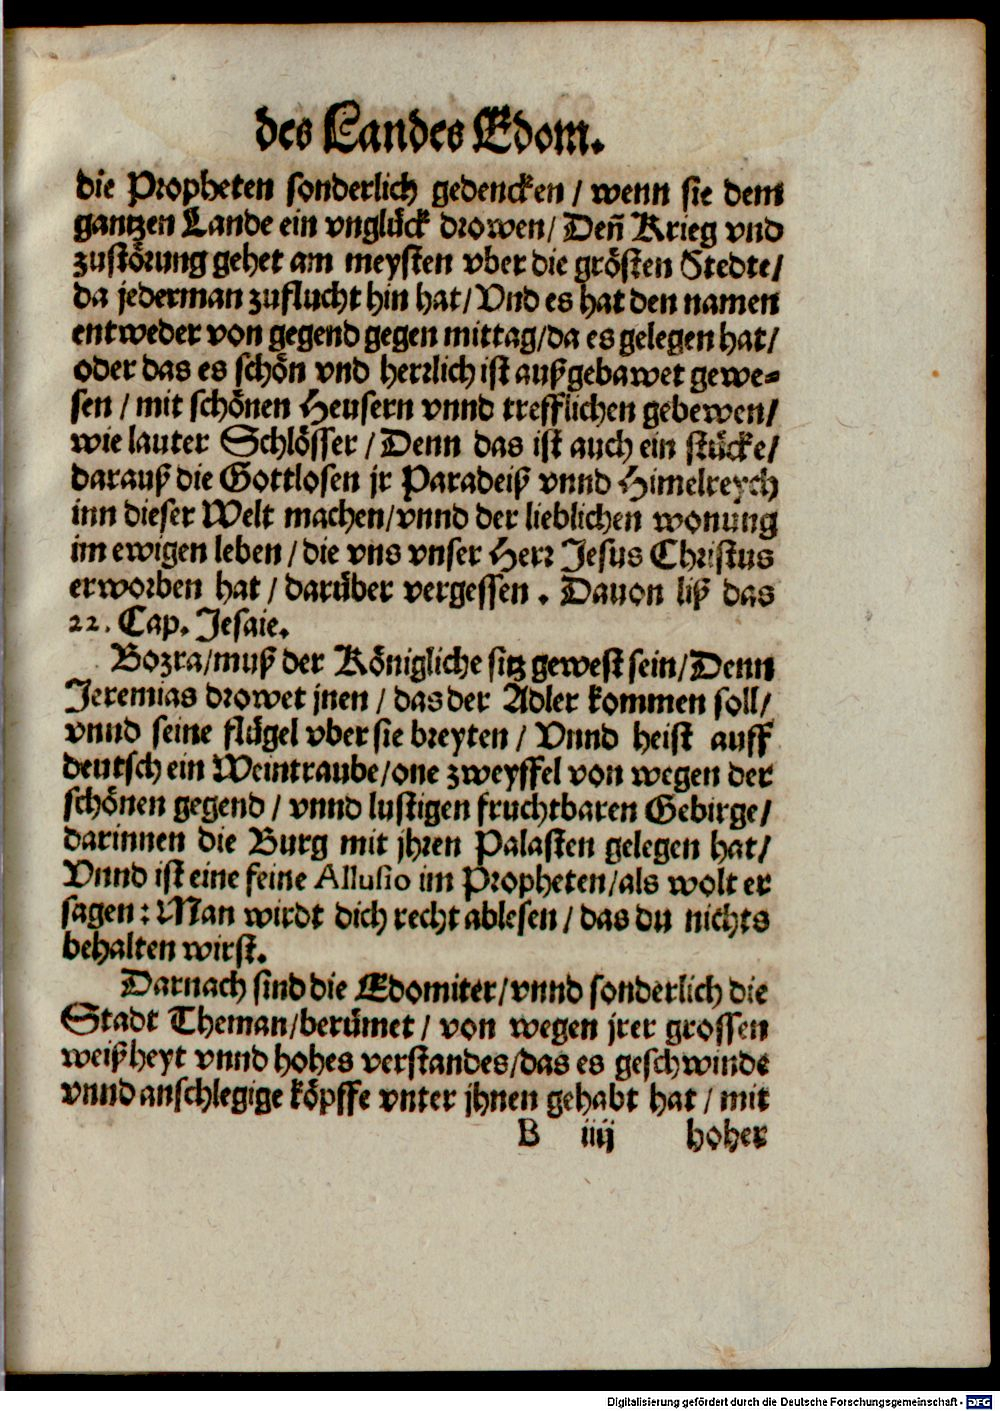 des Landes Edom.
die Propheten sonderlich gedencken / wenn sie dem
gantzen Lande ein vnglück drowen / Deñ Krieg vnd
zustörung gehet am meysten vber die grösten Stedte /
da jederman zuflucht hin hat / Vnd es hat den namen
entweder von gegend gegen mittag / da es gelegen hat /
oder das es schön vnd herrlich ist außgebawet gewe=
sen / mit schönen Heusern vnnd trefflichen gebewen /
wie lauter Schlösser / Denn das ist auch ein stücke /
darauß die Gottlosen jr Paradeiß vnnd Himelreych
inn dieser Welt machen / vnnd der lieblichen wonung
im ewigen leben / die vns vnser Herr Jesus Christus
erworben hat / darüber vergessen . Dauon liß das
22. Cap. Jesaie.
Bozra / muß der Königliche sitz gewest sein / Denn
Jeremias drowet jnen / das der Adler kommen soll /
vnnd seine flügel vber sie breyten / Vnnd heist auff
deutsch ein Weintraube / one zweyffel von wegen der
schönen gegend / vnnd lustigen fruchtbaren Gebirge /
darinnen die Burg mit jhren Palasten gelegen hat /
Vnnd ist eine feine Allusio im Propheten / als wolt er
sagen : Man wirdt dich recht ablesen / das du nichts
behalten wirst.
Darnach sind die Edomiter / vnnd sonderlich die
Stadt Theman / berümet / von wegen jrer grossen
weißheyt vnnd hohes verstandes / das es geschwinde
vnnd anschlegige köpffe vnter jhnen gehabt hat / mit
B iiij hoher
Digitalisierung gefördert durch die Deutsche Forschungsgemeinschaft - DFG